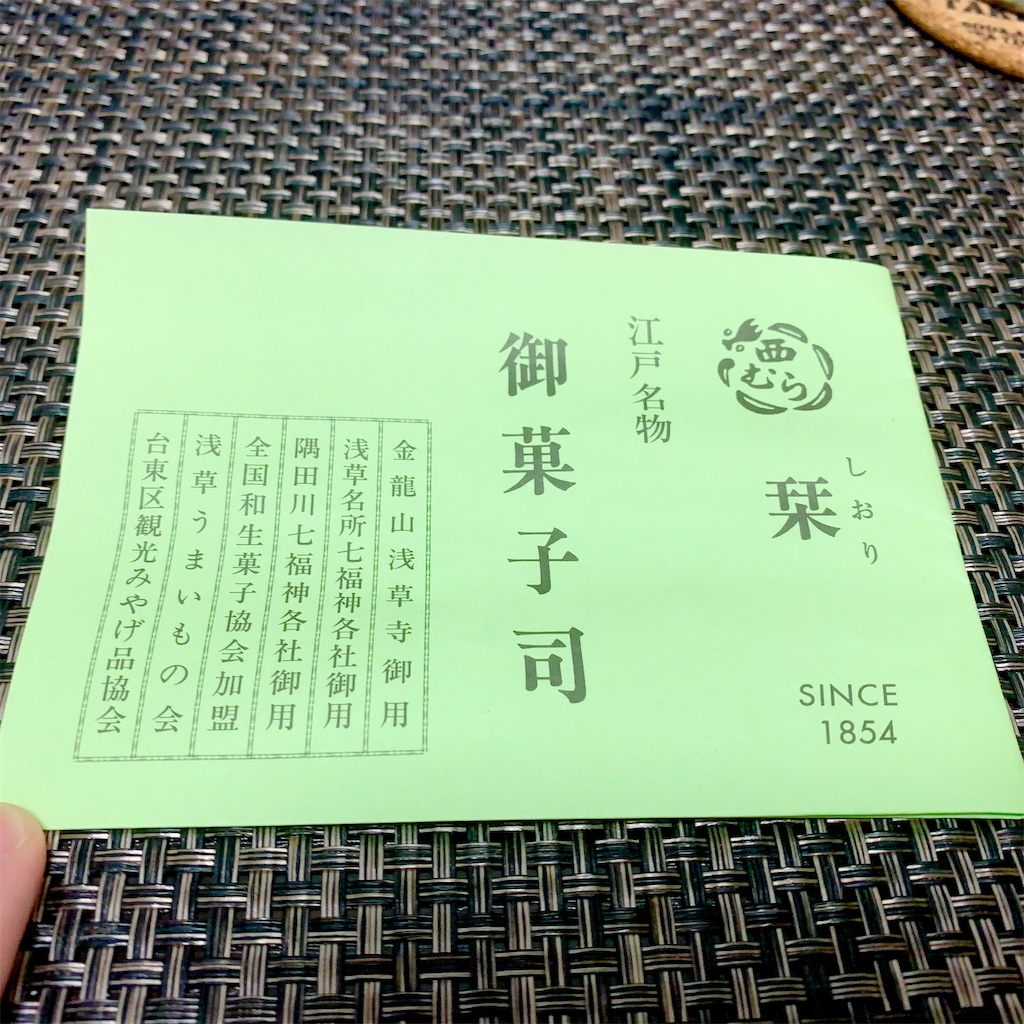 西むら
しおり
栞
SINCE
1854
江戸名物
御菓子司
金龍山浅草寺御用
浅草名所七福神各社御用
隅田川七福神各社御用
全国和生菓子協会加盟
浅草うまいもの会
台東区観光みやげ品協会